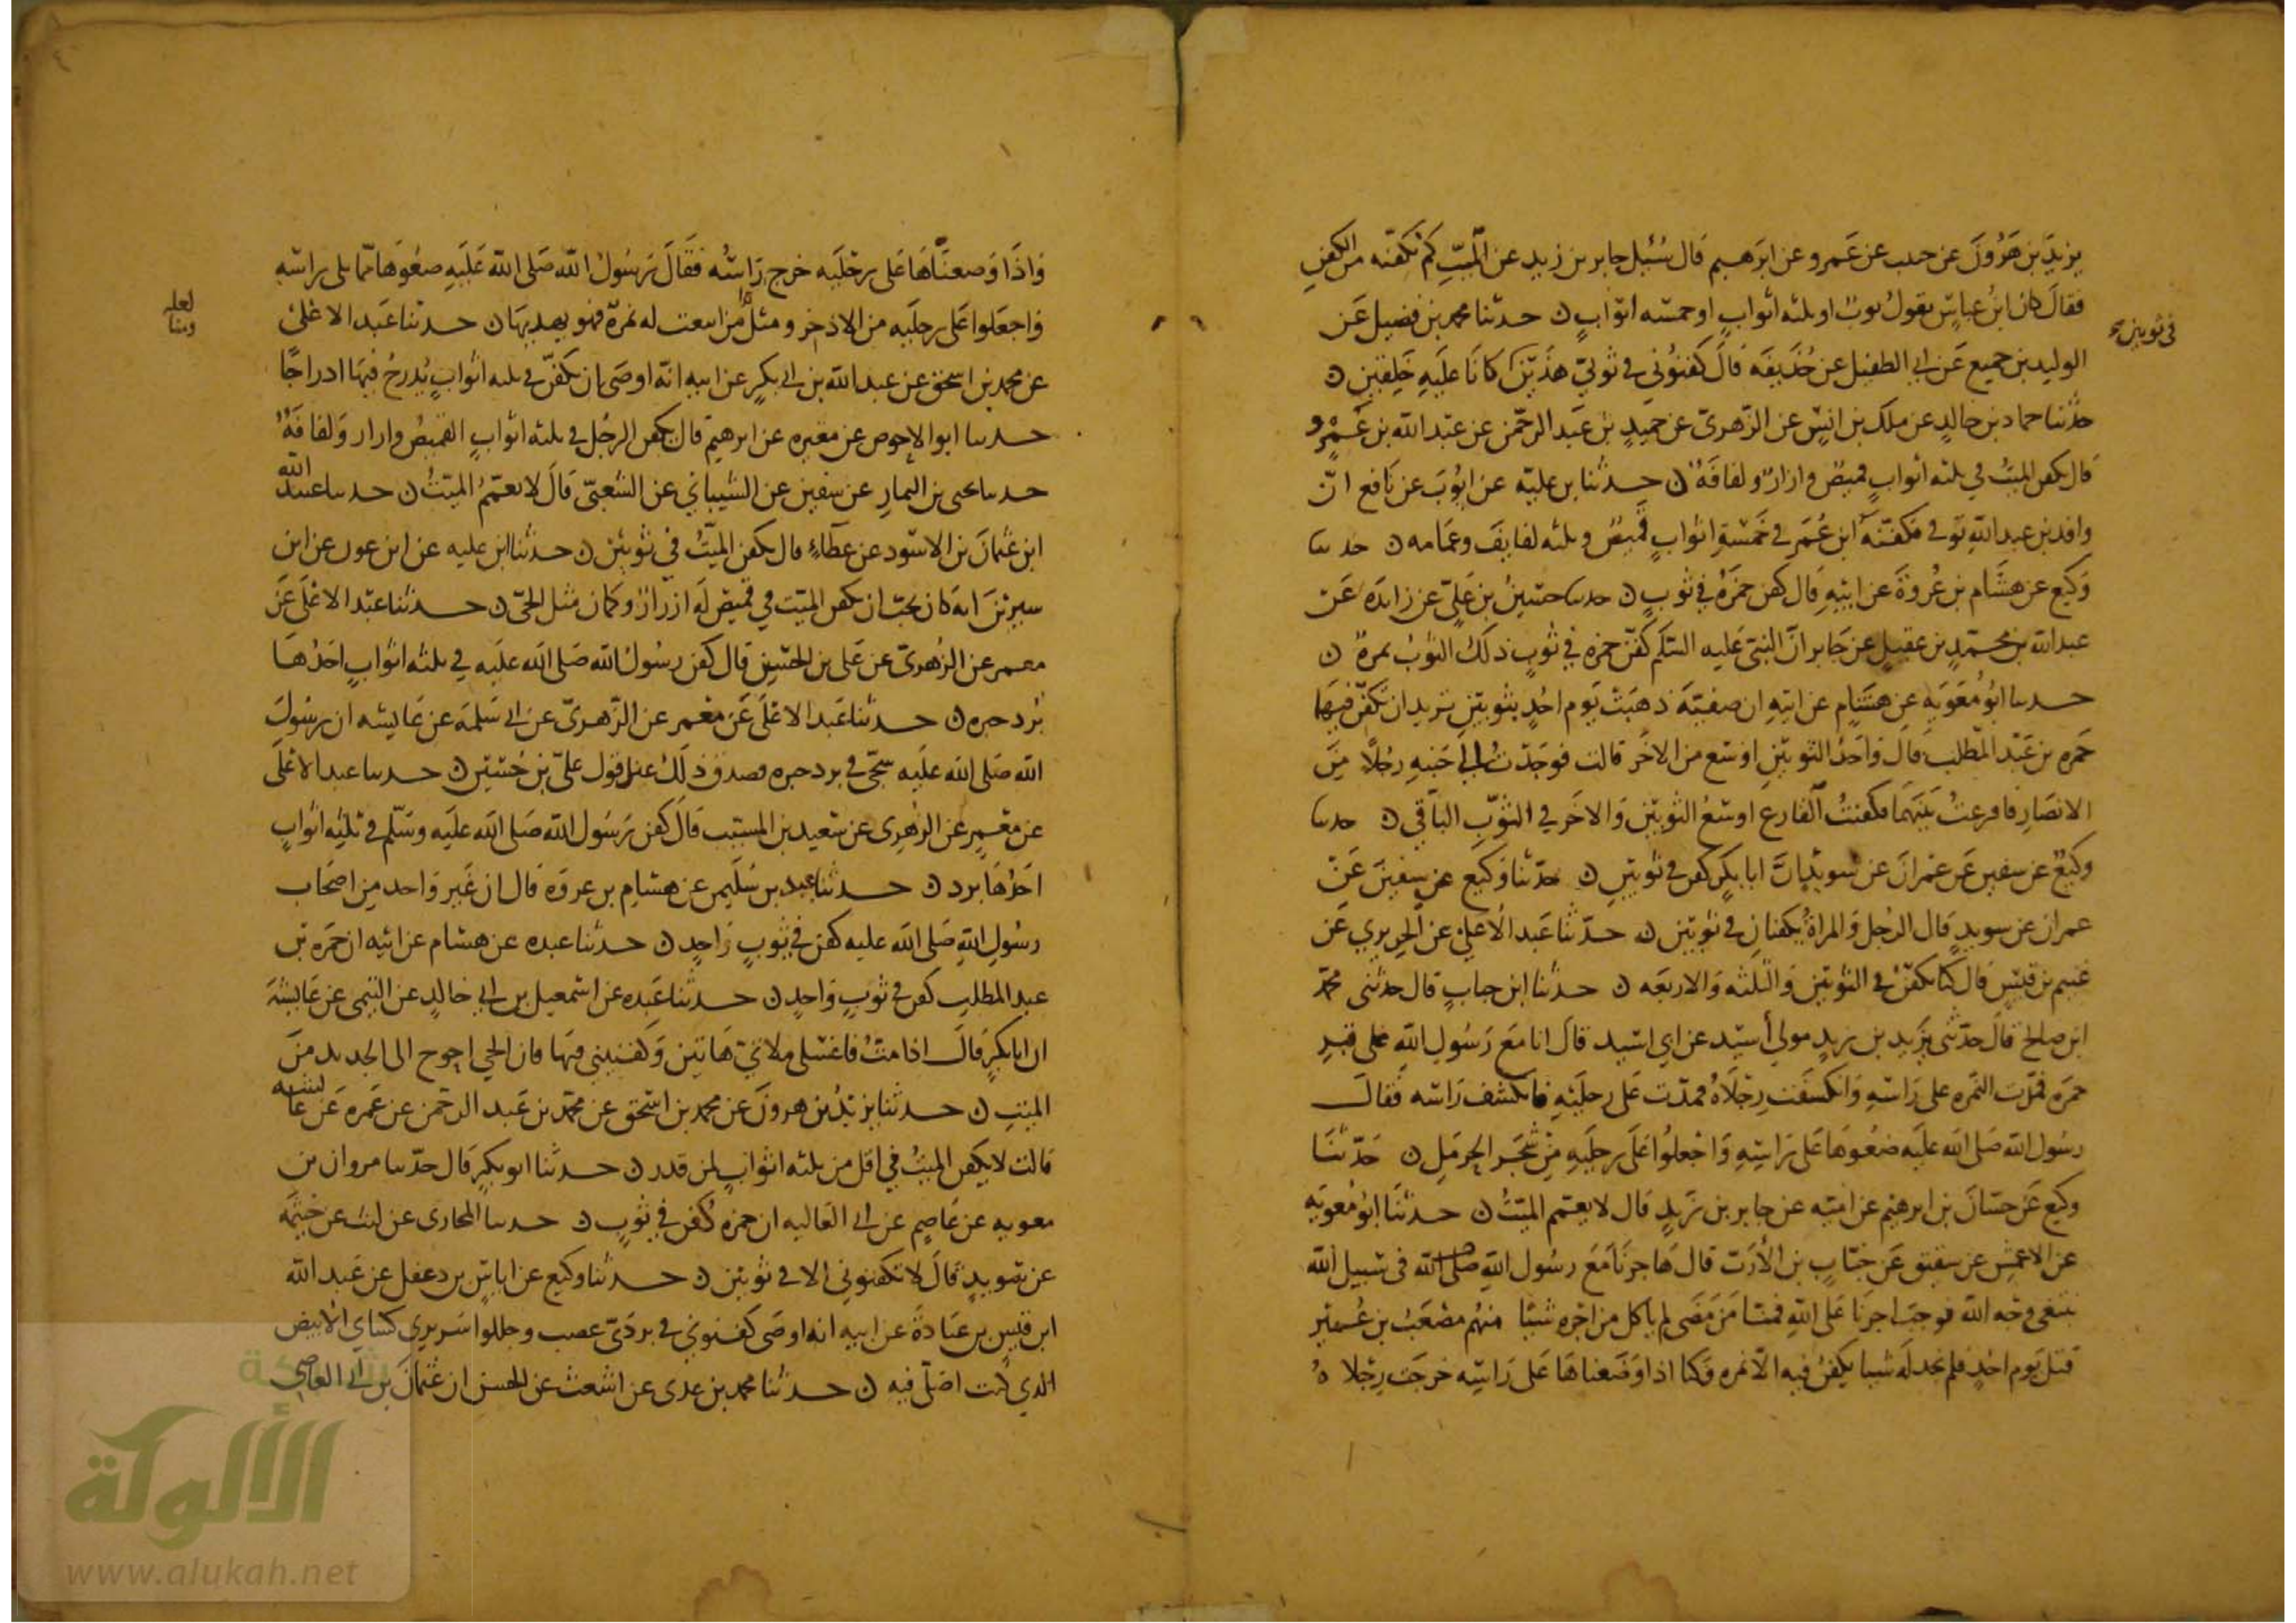 يزيد بن هرون عن حبيب عن عمرو عن ابرهيم قال سئل جابر بن زيد عن الميت كم نكفنه من الكفن
فقال كان ابن عباس يقول ثوب او ثلثه اثواب او خمسه اثواب ن حدثنا محمد بن فضيل عن
في ثوبين
الوليد بن جميع عن ابي الطفيل عن حذيفه قال كفنوني في ثوبي هذين كانا عليه خلقين ن
حدثنا حماد بن خالد عن ملك بن انس عن الزهري عن حميد بن عبد الرحمن عن عبد الله بن عمرو
قال يكفن الميت في ثلثه اثواب قميص وازار ولفافه ن حدثنا بن عليه عن ايوب عن نافع ان
واقد بن عبد الله توفي فكفنه ابن عمر في خمسة اثواب قميص وثلثه لفايف وعمامه ن حدثنا
وكيع عن هشام بن عروة عن ابيه قال كفن حمزه في ثوب ن حدثنا حسين بن علي عن زايده عن
عبد الله بن محمد بن عقيل عن جابر ان النبي عليه السلم كفن حمزه في ثوب ذلك الثوب نمره ن
حدثنا ابو معويه عن هشام عن ابيه ان صفيه ذهبت يوم احد بثوبين تريد ان تكفن فيهما
حمزه بن عبد المطلب قال واحد الثوبين اوسع من الاخر قالت فوجدت الى جنبه رجلا من
الانصار فاقرعت بينهما فكفنت الفارع اوسع الثوبين والاخر في الثوب الباقي ن حدثنا
وكيع عن سفين عن عمران عن سويد ان ابا بكر كفن في ثوبين ن حدثنا وكيع عن سفين عن
عمران عن سويد قال الرجل والمراة يكفنان في ثوبين ن حدثنا عبد الاعلى عن الجريري عن
غنيم بن قيس قال كنا نكفن في الثوبين والثلثه والاربعه ن حدثنا ابن حباب قال حدثني محمد
ابن صالح قال حدثني يزيد بن زيد مولى أسيد عن ابي اسيد قال انا مع رسول الله على قبر
حمزه فمدت النمره على راسه وانكشفت رجلاه فمدت على رجليه فانكشف راسه فقال
رسول الله صلى الله عليه ضعوها على راسه واجعلوا على رجليه من شجر الحرمل ن حدثنا
وكيع عن حسان بن ابرهيم عن اميه عن جابر بن زيد قال لا يعمم الميت ن حدثنا ابو معويه
عن الاعمش عن شقيق عن خباب بن الأرت قال هاجرنا مع رسول الله صلى الله في سبيل الله
نبتغي وجه الله فوجب اجرنا على الله فمنا من مضى لم ياكل من اجره شيئا منهم مصعب بن عمير
قتل يوم احد فلم نجد له شيا يكفن فيه الا نمره وكنا اذا وضعناها على راسه خرجت رجلاه
واذا وضعناها على رجليه خرج راسه فقال رسول الله صلى الله عليه ضعوها مما يلي راسه
واجعلوا على رجليه من الاذخر ومثل من اينعت له نمرة فهو يهدبها ن حدثنا عبد الاعلى
لعله ومنا
عن محمد بن اسحق عن عبد الله بن ابي بكر عن ابيه انه اوصى ان يكفن في ثلثه اثواب يدرج فيها ادراجا
حدثنا ابو الاحوص عن مغيره عن ابرهيم قال يكفن الرجل في ثلثه اثواب القميص وازار ولفافة
حدثنا يحيى بن اليمان عن سفين عن الشيباني عن الشعبي قال لا يعمم الميت ن حدثنا عبيد الله
ابن عثمان بن الاسود عن عطاء قال يكفن الميت في ثوبين ن حدثنا ابن عليه عن ابن عون عن ابن
سيرين انه كان يحب ان يكفن الميت في قميص له ازرار وكمان مثل الحي ن حدثنا عبد الاعلى عن
معمر عن الزهري عن علي بن الحسين قال كفن رسول الله صلى الله عليه في ثلثه اثواب احدها
برد حبره ن حدثنا عبد الاعلى عن معمر عن الزهري عن ابي سلمة عن عايشه ان رسول
الله صلى الله عليه سجي في برد حبره فصدق ذلك عندي قول علي بن حسين ن حدثنا عبد الاعلى
عن معمر عن الزهري عن سعيد بن المسيب قال كفن رسول الله صلى الله عليه وسلم في ثلثه اثواب
احدها برد ن حدثنا عبد بن سليمن عن هشام بن عروة قال ان غير واحد من اصحاب
رسول الله صلى الله عليه كفن في ثوب واحد ن حدثنا عبده عن هشام عن ابيه ان حمزه بن
عبد المطلب كفن في ثوب واحد ن حدثنا عبده عن اسمعيل بن ابي خالد عن التيمي عن عايشة
ان ابا بكر قال اذا مت فاغسلي ملاتي هاتين وكفنيني فيها فان الحي احوج الى الجديد من
الميت ن حدثنا يزيد بن هرون عن محمد بن اسحق عن محمد بن عبد الرحمن عن عمره عن عايشه
قالت لا يكفن الميت في اقل من ثلثه اثواب لمن قدر ن حدثنا ابو بكر قال حدثنا مروان بن
معويه عن عاصم عن ابي العاليه ان حمزه كفن في ثوب ن حدثنا المحاربي عن ليث عن خيثمه
عن سويد قال لا تكفنوني الا في ثوبين ن حدثنا وكيع عن اياس بن دغفل عن عبد الله
ابن قيس بن عبادة عن ابيه انه اوصى كفنوني في بردي عصب وجللوا سريري كساي الابيض
الذي كنت اصلي فيه ن حدثنا محمد بن عدي عن اشعث عن الحسن ان عثمان بن ابي العاصي
شبكة
الألوكة
www.alukah.net